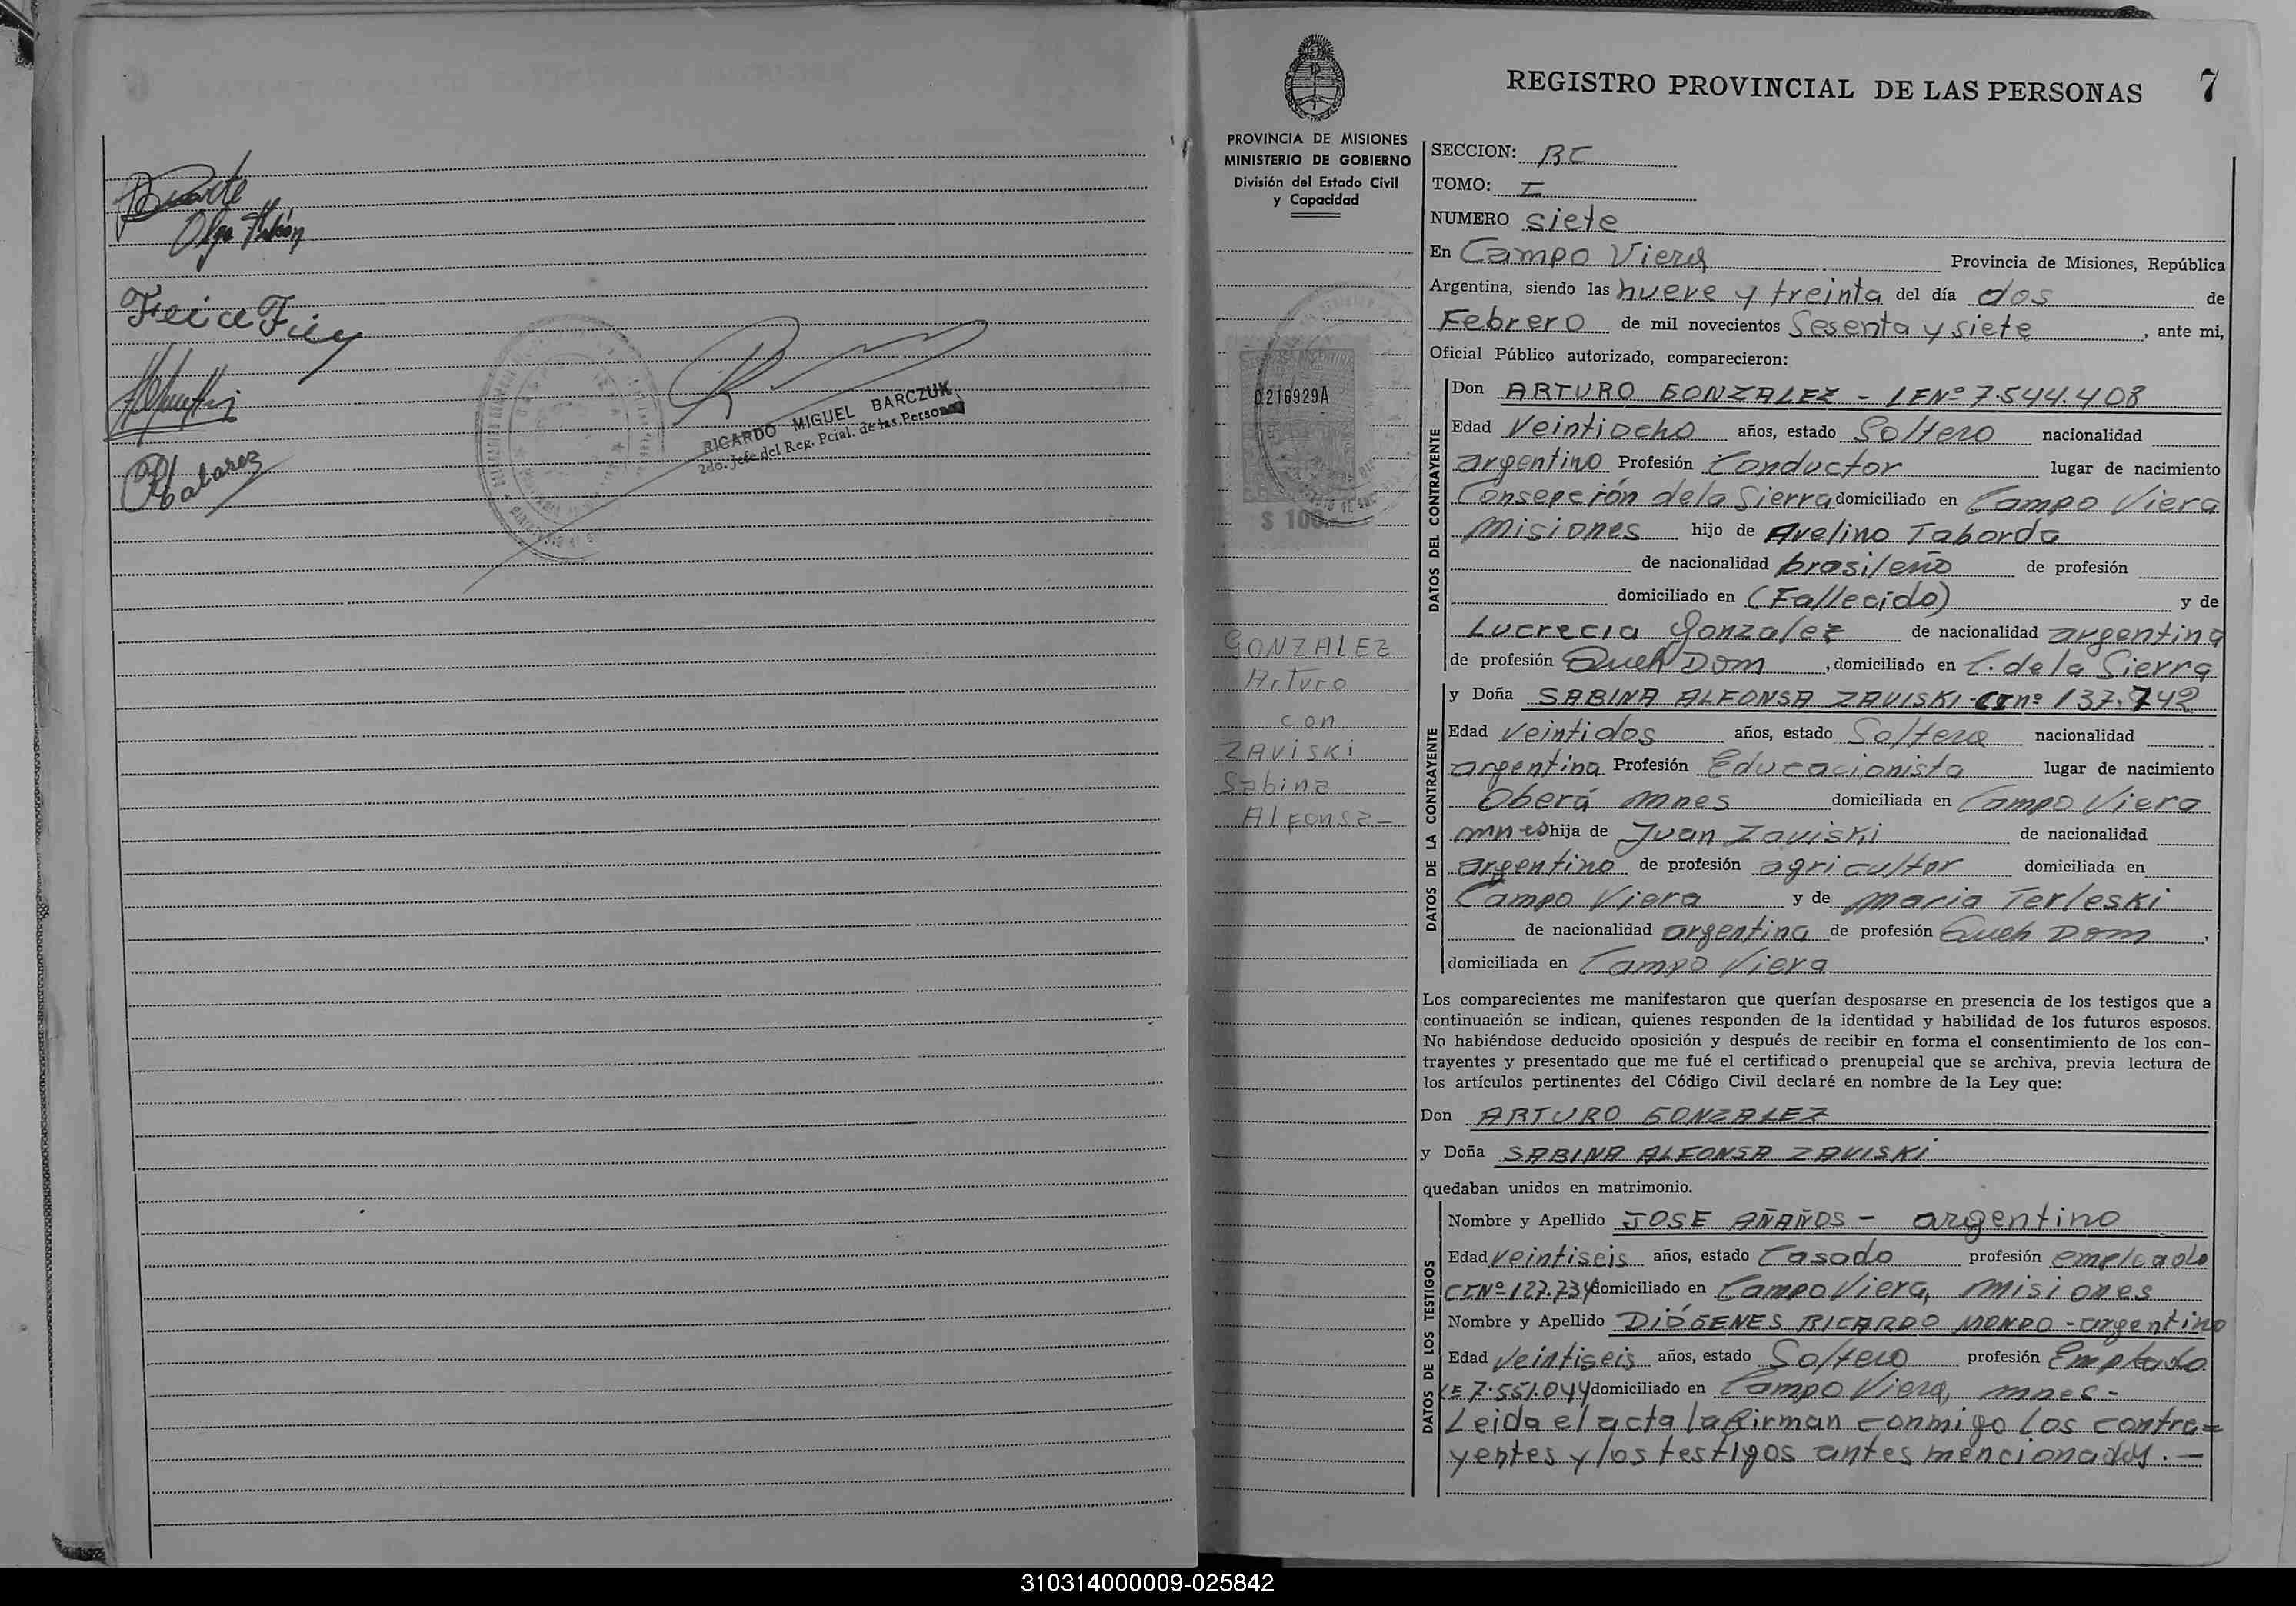 Duarte
Olga
RICARDO MIGUEL BARCZUK
2do. Jefe del Reg. Pcial. de las Personas
REGISTRO PROVINCIAL DE LAS PERSONAS 7
PROVINCIA DE MISIONES
MINISTERIO DE GOBIERNO
División del Estado Civil
y Capacidad
0216929A
$ 100
GONZALEZ
Arturo
con
ZAVISKI
Sabina
Alfonsa-
SECCION: BC
TOMO: I
NUMERO siete
En Campo Viera Provincia de Misiones, República
Argentina, siendo las nueve y treinta del día dos de
Febrero de mil novecientos Sesenta y siete, ante mi,
Oficial Público autorizado, comparecieron:
DATOS DEL CONTRAYENTE
Don ARTURO GONZALEZ - LENº 7.544.408
Edad Veintiocho años, estado Soltero nacionalidad
argentino Profesión Conductor lugar de nacimiento
Consepción de la Sierra domiciliado en Campo Viera
Misiones hijo de Avelino Taborda
de nacionalidad brasileño de profesión
domiciliado en (Fallecido) y de
Lucrecia Gonzalez de nacionalidad argentina
de profesión Queh Dom, domiciliado en C. de la Sierra
DATOS DE LA CONTRAYENTE
y Doña SABINA ALFONSA ZAVISKI - CI nº 137.742
Edad veintidos años, estado Soltera nacionalidad
argentina Profesión Educacionista lugar de nacimiento
Oberá mnes domiciliada en Campo Viera
mnes hija de Juan Zaviski de nacionalidad
argentino de profesión agricultor domiciliada en
Campo Viera y de Maria Terleski
de nacionalidad argentina de profesión Queh Dom,
domiciliada en Campo Viera
Los comparecientes me manifestaron que querían desposarse en presencia de los testigos que a
continuación se indican, quienes responden de la identidad y habilidad de los futuros esposos.
No habiéndose deducido oposición y después de recibir en forma el consentimiento de los con-
trayentes y presentado que me fué el certificado prenupcial que se archiva, previa lectura de
los artículos pertinentes del Código Civil declaré en nombre de la Ley que:
Don ARTURO GONZALEZ
y Doña SABINA ALFONSA ZAVISKI
quedaban unidos en matrimonio.
DATOS DE LOS TESTIGOS
Nombre y Apellido JOSE AÑAÑOS - argentino
Edad veintiseis años, estado Casado profesión empleado
CINº 127.734 domiciliado en Campo Viera, misiones
Nombre y Apellido DIÓGENES RICARDO MONDO - argentino
Edad Veintiseis años, estado Soltero profesión Empleado
LE 7.551.044 domiciliado en Campo Viera, mnes-
Leida el acta la firman conmigo los contra=
yentes y los testigos antes mencionados.-
310314000009-025842